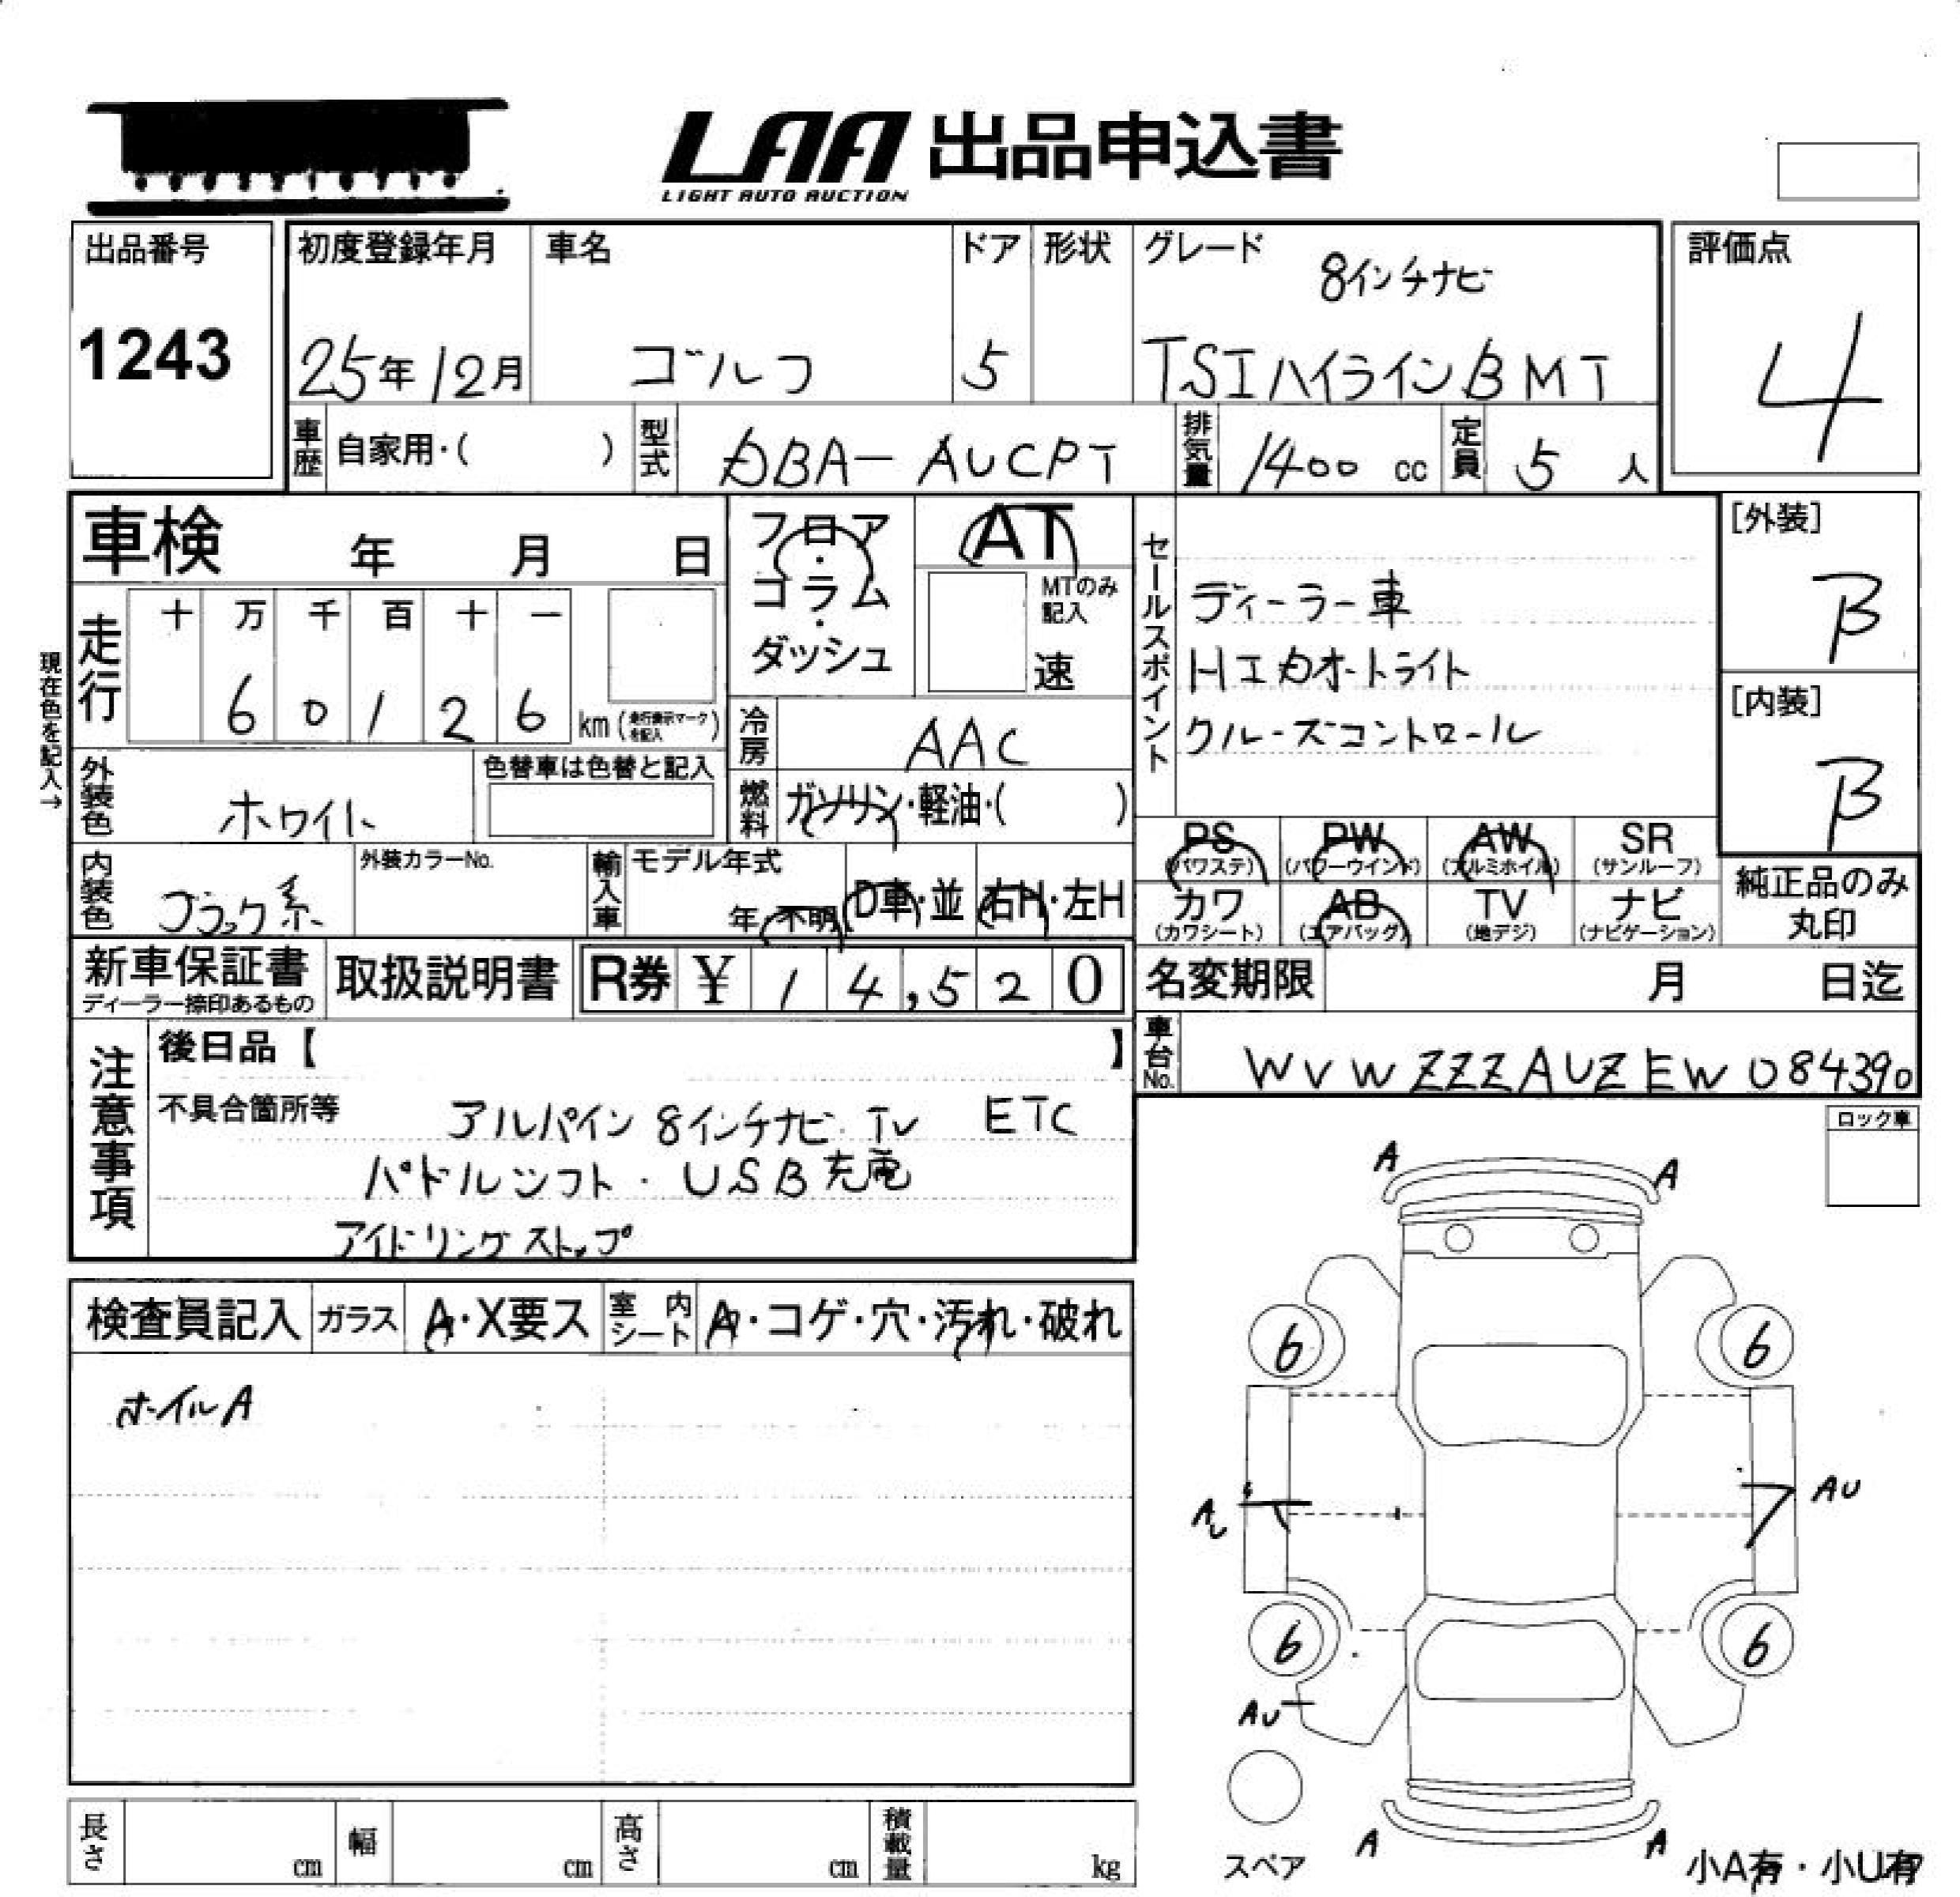 LAA 出品申込書
LIGHT AUTO AUCTION
出品番号
1243
初度登録年月
25年12月
車名
ゴルフ
ドア
5
形状
グレード
8インチナビ
TSIハイラインBMT
評価点
4
車歴
自家用・(　　)
型式
DBA-AUCPT
排気量
1400 cc
定員
5 人
車検 年 月 日
フロア・コラム・ダッシュ
AT
MTのみ記入
速
セールスポイント
ディーラー車
HIDオートライト
クルーズコントロール
[外装]
B
[内装]
B
現在色を記入→
走行
十 万 千 百 十 一
6 0 1 2 6 km (走行表示マークを記入)
冷房
AAC
外装色
ホワイト
色替車は色替と記入
燃料
ガソリン・軽油・(　　)
PS (パワステ)
PW (パワーウインド)
AW (アルミホイル)
SR (サンルーフ)
カワ (カワシート)
AB (エアバッグ)
TV (地デジ)
ナビ (ナビゲーション)
純正品のみ丸印
内装色
ブラック系
外装カラーNo.
輸入車
モデル年式
年・不明
D車・並
右H・左H
新車保証書
ディーラー捺印あるもの
取扱説明書
R券 ¥ 14,520
名変期限 月 日迄
車台No.
WVWZZZAUZEW084390
注意事項
後日品【　　】
不具合箇所等
アルパイン 8インチナビ・TV ETC
パドルシフト・USB充電
アイドリングストップ
ロック車
検査員記入
ガラス
A・X要ス
室内シート
A・コゲ・穴・汚れ・破れ
ホイルA
A
A
6
6
A
AU
6
6
AU
A
A
スペア
小A有・小U有
長さ cm
幅 cm
高さ cm
積載量 kg